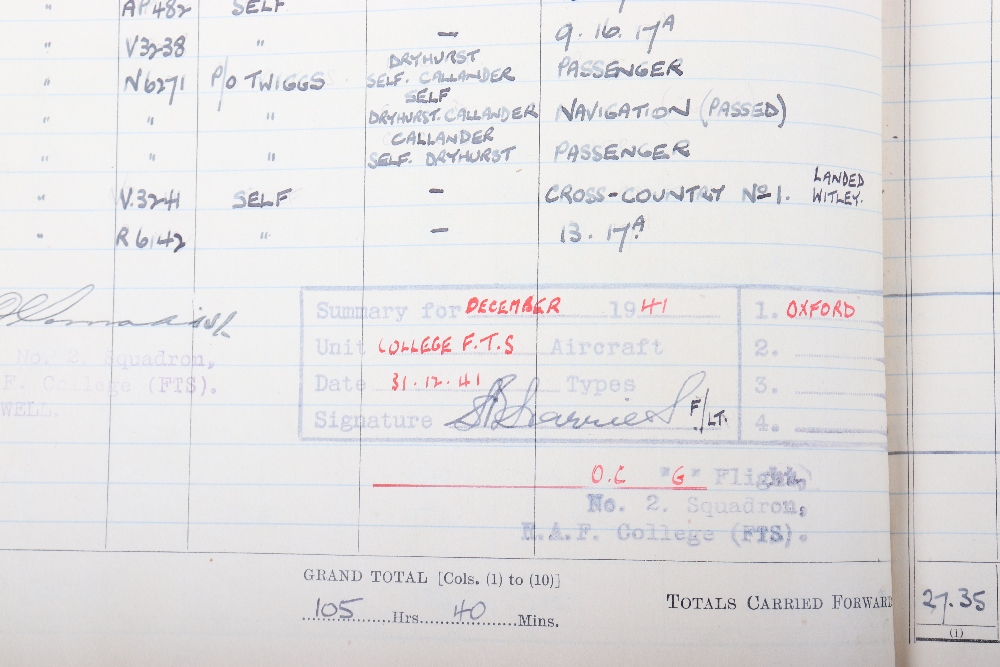 " AP482 SELF
" V3238 " — 9.16.17A
DRYHURST
" N6271 P/O TWIGGS SELF. CALLANDER PASSENGER
SELF
" " " DRYHURST. CALLANDER NAVIGATION (PASSED)
CALLANDER
" " " SELF. DRYHURST PASSENGER
" V.3241 SELF — CROSS-COUNTRY No 1. LANDED
WITLEY.
" R6142 " — 13.17A
No. 2. Squadron,
F. College (FTS).
WELL.
Summary for DECEMBER 1941 1. OXFORD
Unit COLLEGE F.T.S Aircraft 2.
Date 31.12.41 Types 3.
Signature F/LT. 4.
O.C "G" Flight,
No. 2. Squadron,
R.A.F. College (FTS).
GRAND TOTAL [Cols. (1) to (10)]
105 Hrs. 40 Mins.
TOTALS CARRIED FORWARD 27.35
(1)